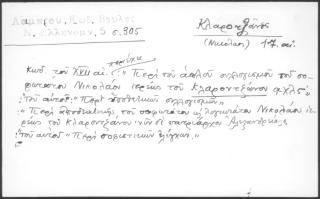 Λάμπρου, Κωδ. Βουλῆς
Ν. Ἑλληνομν. 5 σ. 905
Κλαροντζᾶνος
(Νικόλαος) 17 αἰ.
περιέχει
Κωδ. τοῦ XVII αἰ. "Περὶ τοῦ ἁπλοῦ συλλογισμοῦ τοῦ σο-
φωτάτου Νικολάου ἱερέως τοῦ Κλαροντζάνου αχλς"
Τοῦ αὐτοῦ "Περὶ ὑποθετικῶν συλλογισμῶν"
"Περὶ ἀποδείξεως τοῦ σοφωτάτου λογιωτάτου Νικολάου ἱε-
ρέως τοῦ Κλαροντζάνου νῦν δὲ πατριάρχου Ἀλεξανδρείας
τοῦ αὐτοῦ "Περὶ σοφιστικῶν ἐλέγχων"